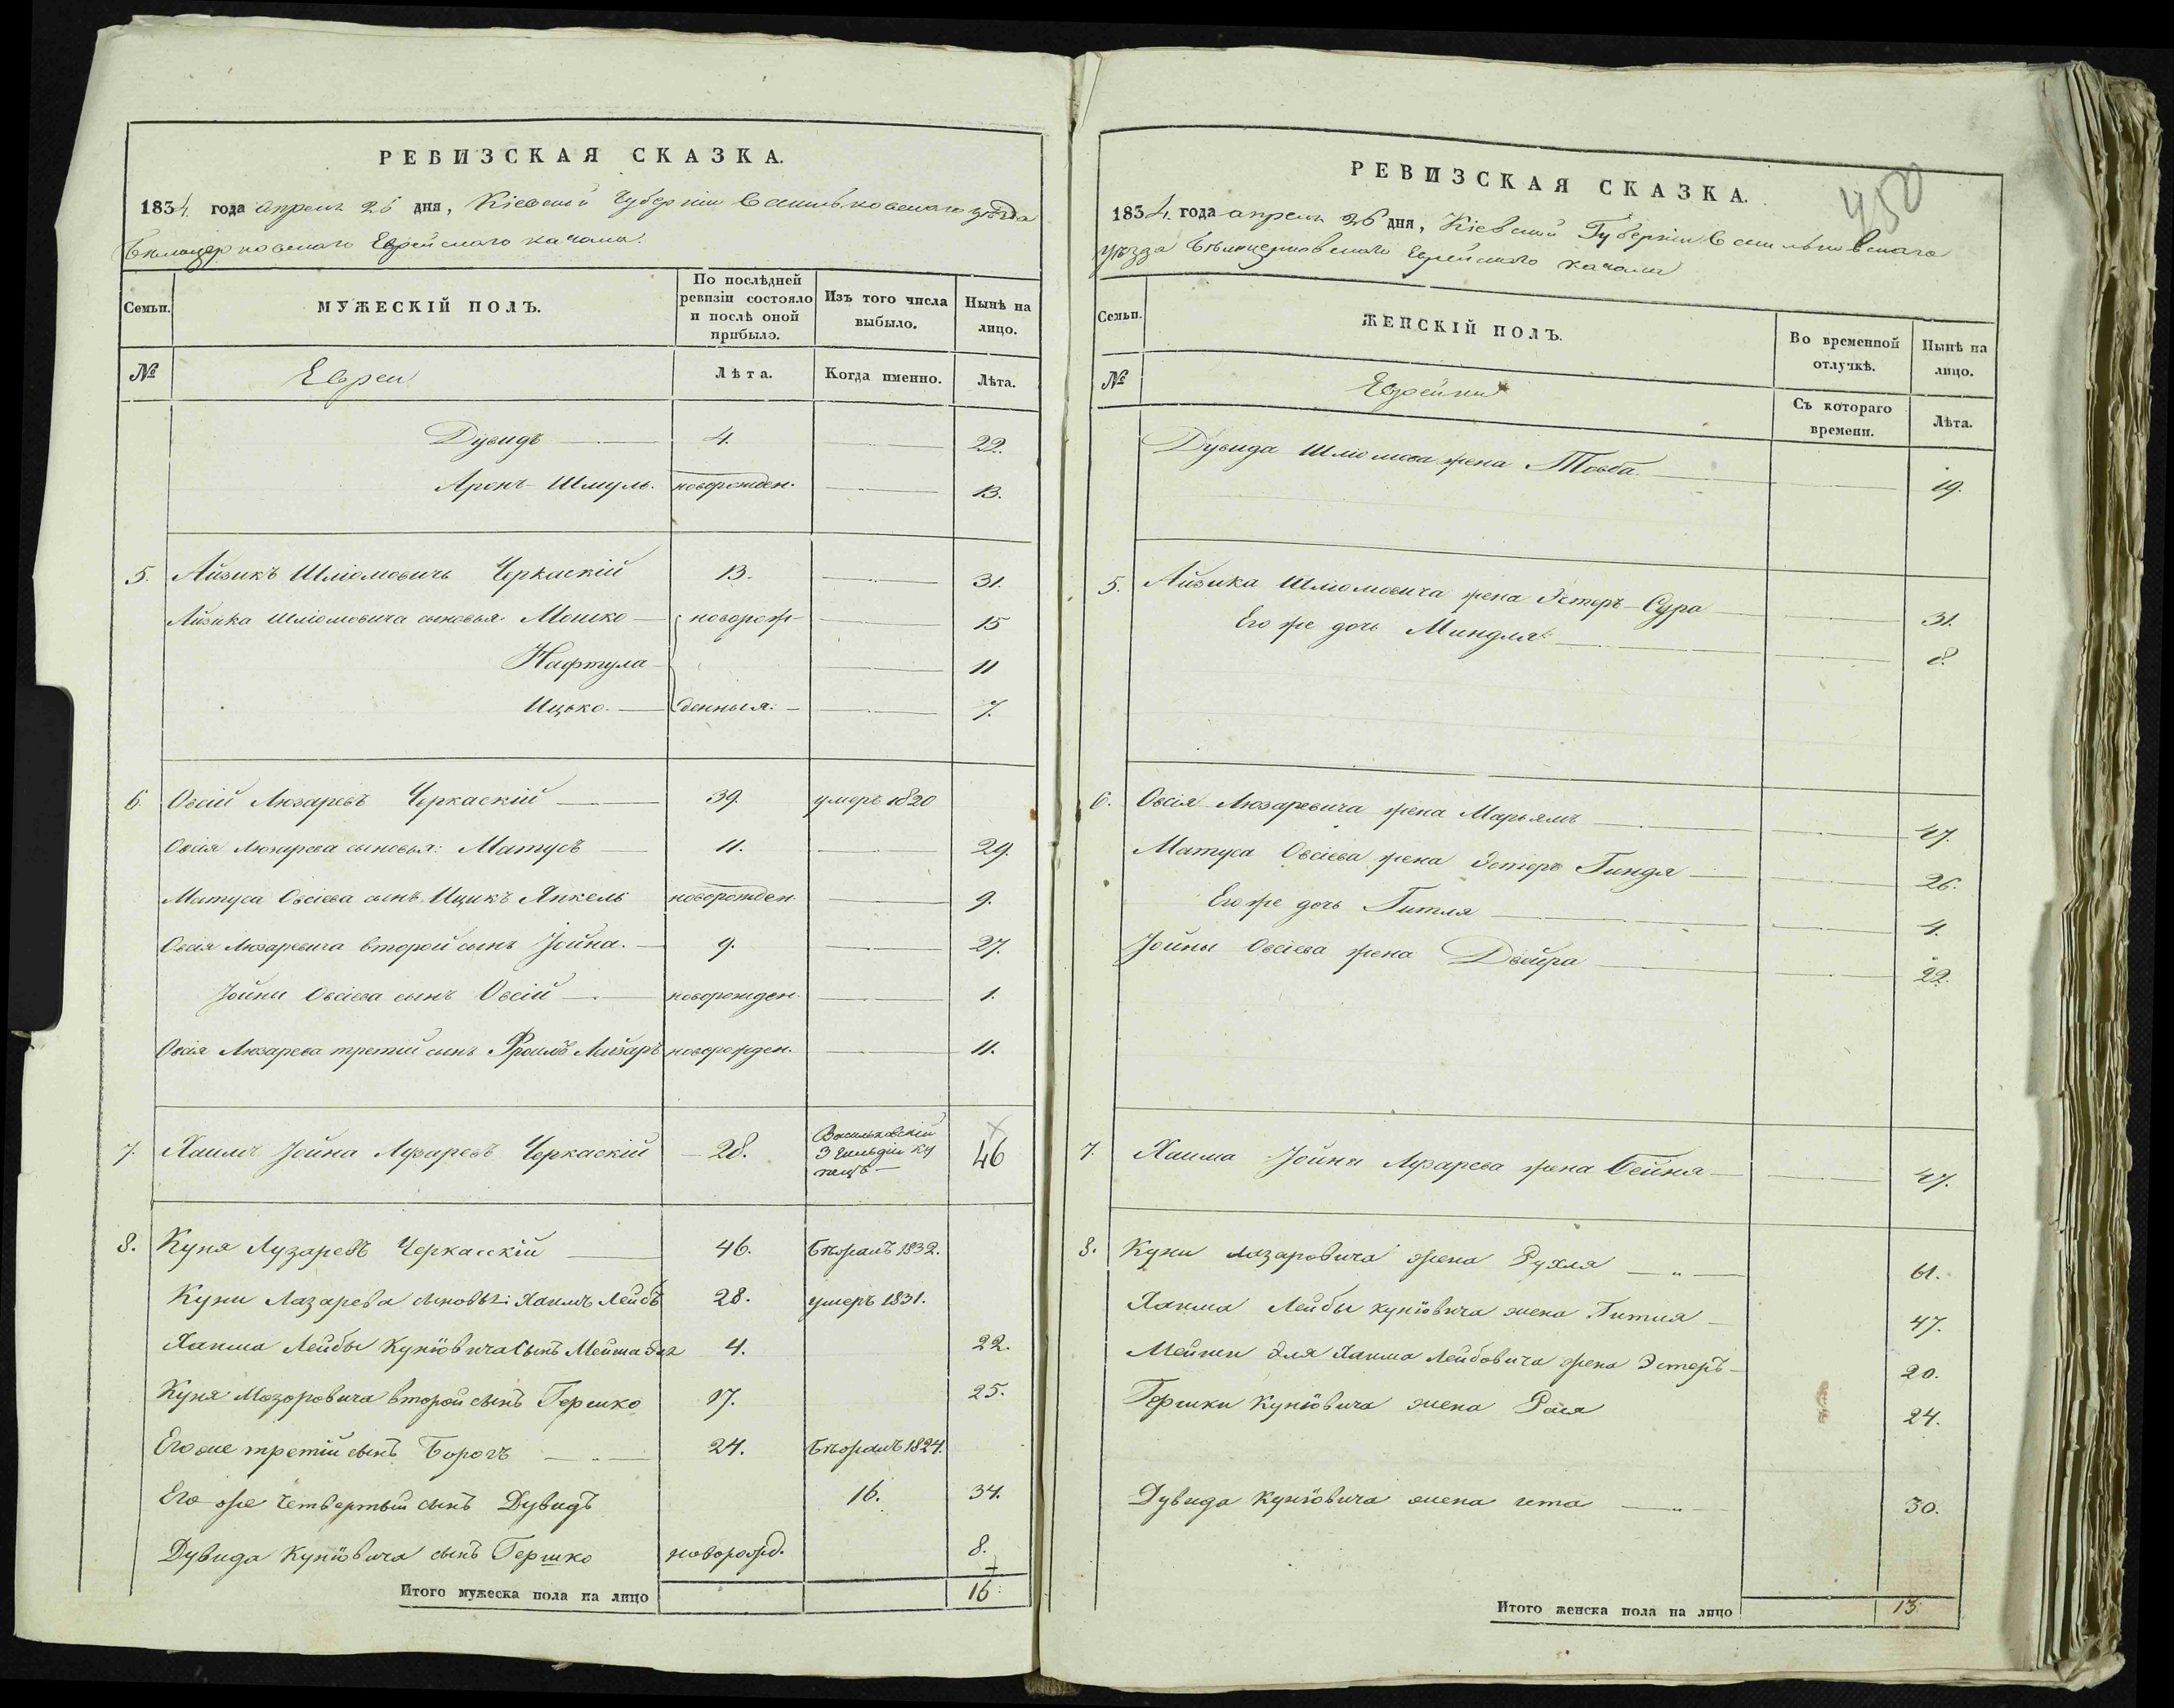 РЕВИЗСКАЯ СКАЗКА.
1834 года апреля 26 дня, Кіевской Губерніи Васильковского уѣзда
Бѣлоцерковскаго Еврейскаго кагала.
Семьи. МУЖЕСКІЙ ПОЛЪ. По послѣдней ревизіи состояло и послѣ оной прибыло. Изъ того числа выбыло. Нынѣ на лицо.
№ Евреи Лѣта. Когда именно. Лѣта.
Дувидъ 4. 22.
Аронъ-Шмуль. новорожден. 13.
5. Айзикъ Шліомовичь Черкаскій 13. 31.
Айзика Шліомовича сыновья: Мошко новорож- 15
Нафтула 11
Ицько. денныя. 7.
6. Овсій Люзаревъ Черкаскій 39. умеръ 1820
Овсія Люзарева сыновья: Матусъ 11. 29.
Матуса Овсіева сынъ Ицикъ Янкель новорожден. 9.
Овсія Люзаревича второй сынъ Іойна. 9. 27.
Іойни Овсіева сынъ Овсій новорожден. 1.
Овсія Люзарева третій сынъ Фроимъ Лейзаръ новорожден. 11.
7. Хаимъ Іойна Лузаревъ Черкаскій 28. Васильковскій 3 гильдіи ку пецъ 46
8. Куня Лузаревъ Черкасскій 46. Бѣжалъ 1832.
Куни Лазарева сыновья: Хаимъ Лейбъ 28. умеръ 1831.
Хаима Лейбы Куніовича Сынъ 4. 22.
Куня второй сынъ Гершко 17. 25.
Его же третій сынъ Борохъ 24. Бѣжалъ 1824.
Его же четвертый сынъ Дувидъ 16. 34.
Дувида Куніовича сынъ Гершко новорожд. 8.
Итого мужеска пола на лицо 16
РЕВИЗСКАЯ СКАЗКА.
450
1834 года апреля 26 дня, Кіевской Губерніи Васильковскаго
уѣзда Бѣлоцерковскаго Еврейскаго кагала
Семьи. ЖЕНСКІЙ ПОЛЪ. Во временной отлучкѣ. Нынѣ на лицо.
№ Еврейки Съ котораго времени. Лѣта.
Дувида Шліомова жена Товба. 19.
5. Айзика Шліомовича жена Эстеръ-Сура 31.
Его же дочь Миндля 8.
6. Овсія Люзаревича жена Марьямъ 47.
Матуса Овсіева жена Эстеръ Гиндя 26.
Его же дочь Гитля 4.
Іойны Овсіева жена Двойра 22.
7. Хаима Іойны Лузарева жена Бейня 47.
8. Куни Лазаровича жена Рухля 61.
Хаима Лейбы Куніовича жена Гитля 47.
Эля Хаима Лейбовича жена Эстеръ 20.
Гершки Куніовича жена Рася 24.
Дувида Куніовича жена Ита 30.
Итого женска пола на лицо 13